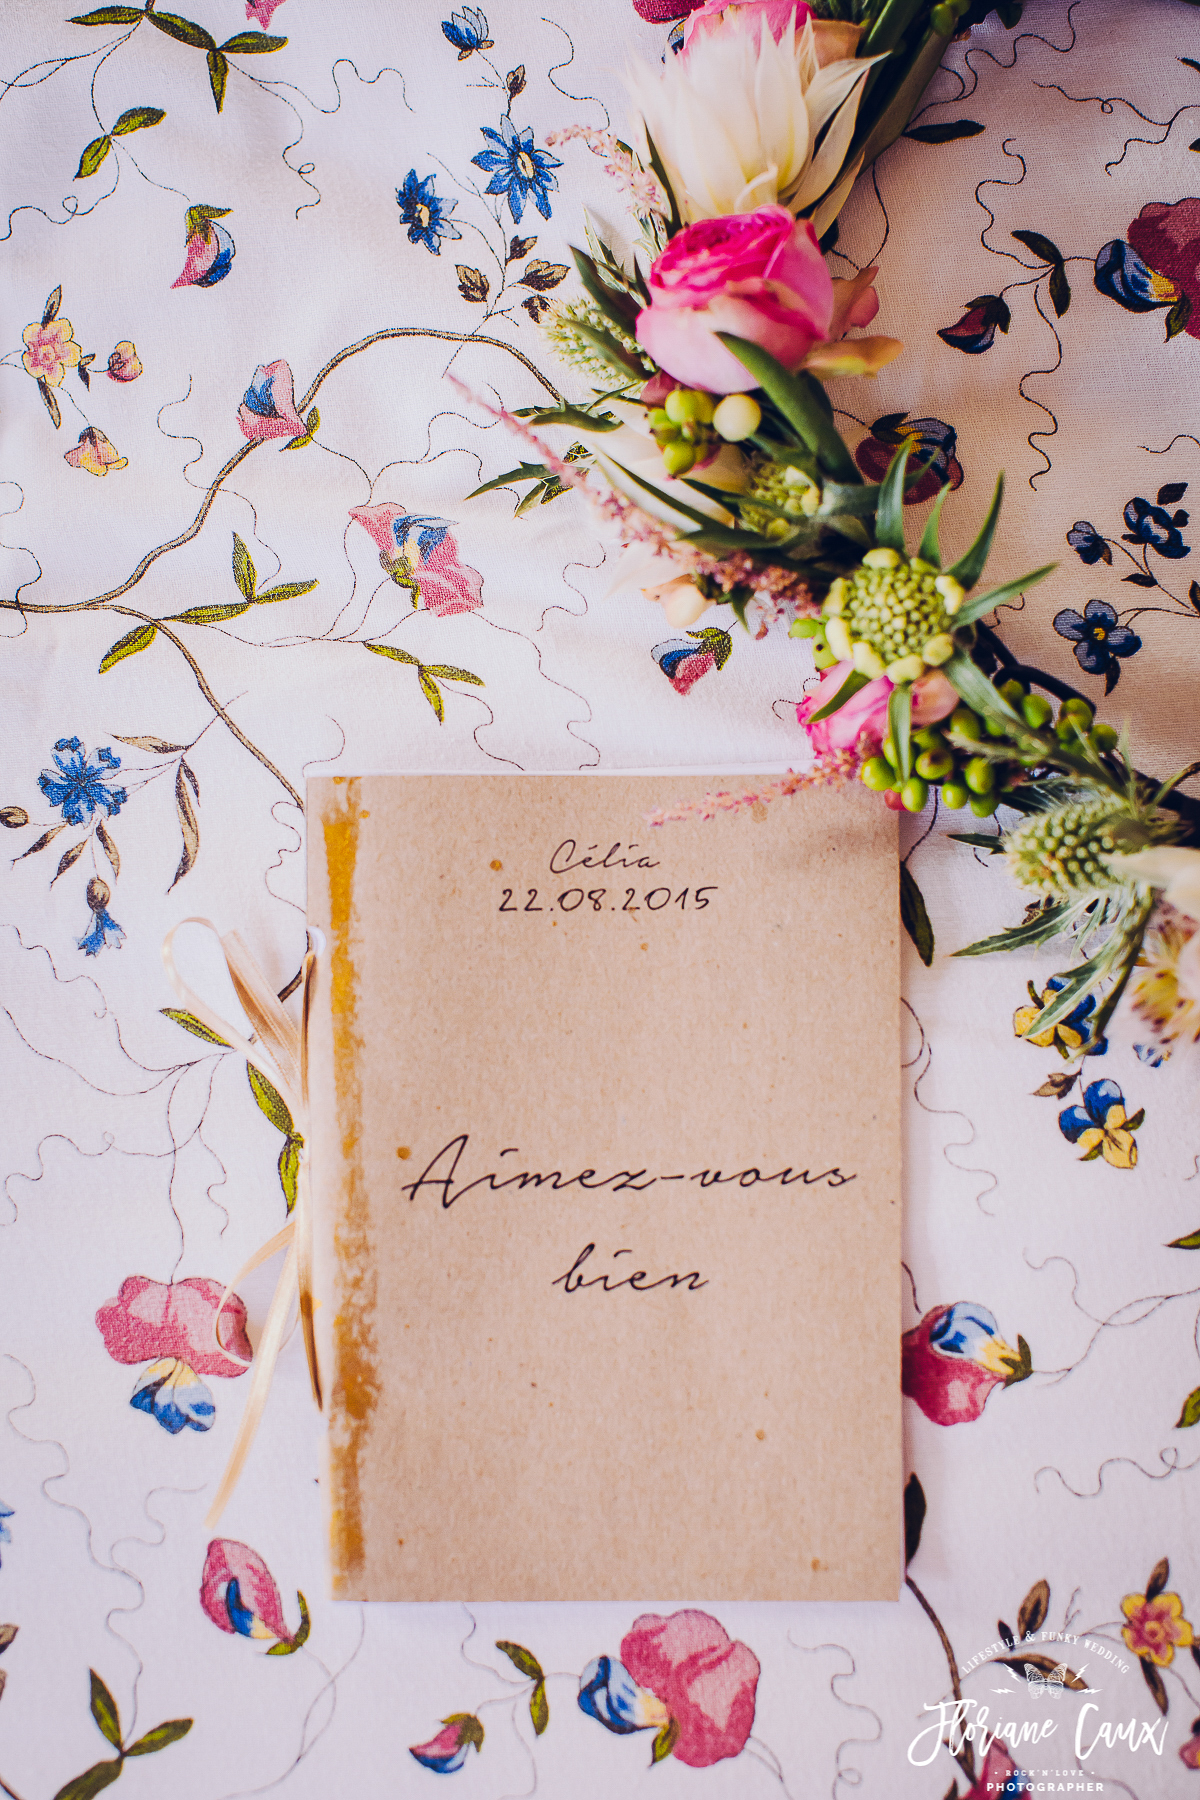 Célia
22.08.2015
Aimez-vous
bien
LIFESTYLE & FUNKY WEDDING
Floriane Caux
• ROCK'N'LOVE •
PHOTOGRAPHER